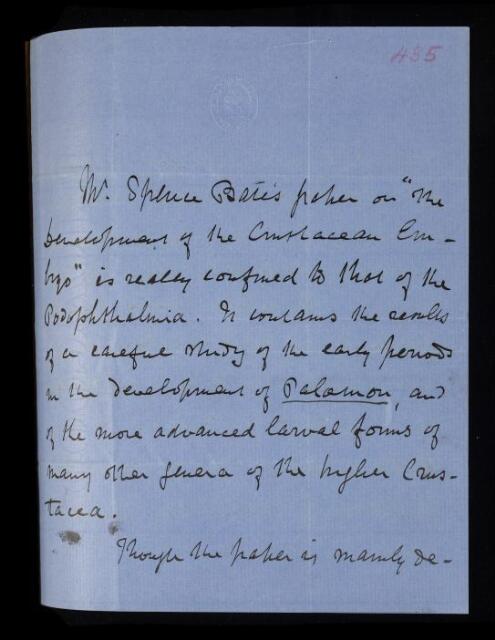 435
Mr. Spence Bate's paper on "the
Development of the Crustacean Em-
bryo" is really confined to that of the
Podophthalmia. It contains the results
of a careful study of the early periods
in the development of Palæmon, and
of the more advanced larval forms of
many other genera of the higher Crus-
tacea.
Though the paper is mainly de-